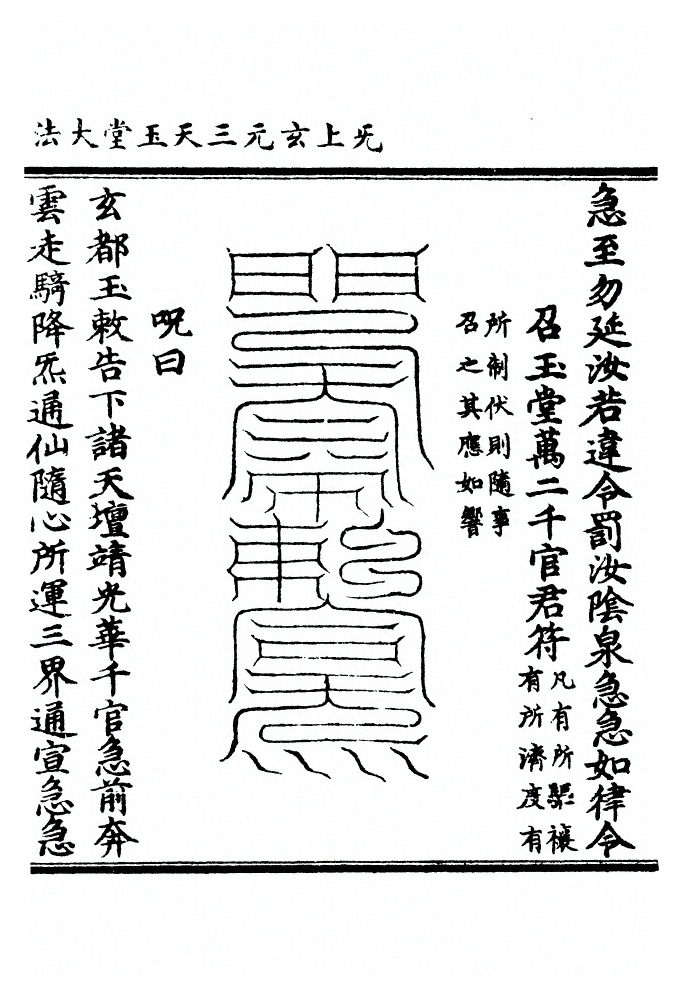 法大堂玉天三元玄上无
急至勿延汝若違令罰汝陰泉急急如律令
召玉堂萬二千官君符
凡有所驅禳
有所濟度有
所制伏則隨事
召之其應如響
呪曰
玄都玉敕告下諸天壇靖光華千官急前奔
雲走騎降炁通仙隨心所運三界通宣急急